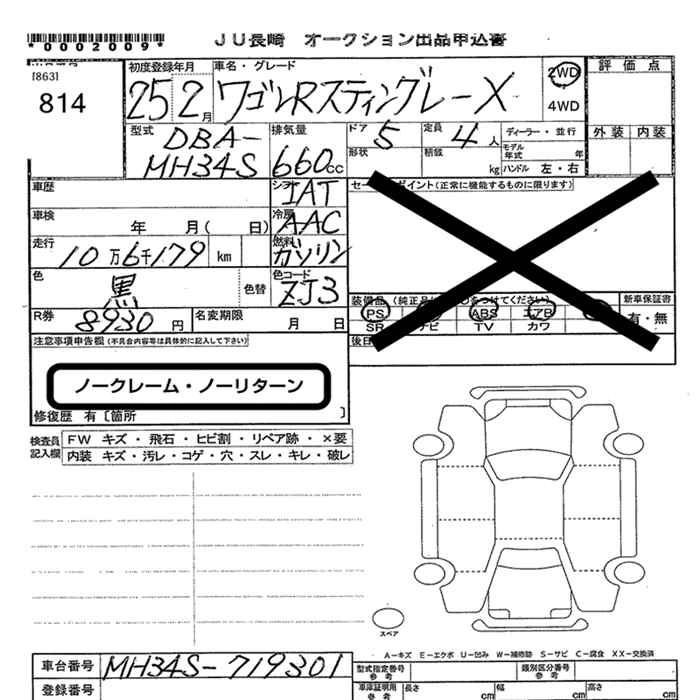 *0002009*
JU長崎 オークション出品申込書
[863]
814
初度登録年月
25 2月
車名・グレード
ワゴンRスティングレーX
2WD
4WD
評価点
外装 内装
型式
DBA-
MH34S
排気量
660cc
ドア 5
形状
定員 4人
積載 kg
ディーラー・並行
モデル年式 年
ハンドル 左・右
車歴
シフト IAT
車検 年 月( 日)
冷房 AAC
走行 10万6千179 km
燃料 ガソリン
色 黒
色替
色コード ZJ3
R券 8930円
名変期限 月 日
セールスポイント(正常に機能するものに限ります)
装備品
PS ABS エアB
SR ナビ TV カワ
新車保証書
有・無
後日
注意事項申告欄(不具合内容等は具体的に記入して下さい)
ノークレーム・ノーリターン
修復歴 有〔箇所 〕
検査員記入欄
FW キズ・飛石・ヒビ割・リペア跡・×要
内装 キズ・汚レ・コゲ・穴・スレ・キレ・破レ
スペア
A-キズ E-エクボ U-凹み W-補修跡 S-サビ C-腐食 XX-交換済
車台番号 MH34S-719301
登録番号
型式指定番号 参考
類別区分番号 参考
車庫証明用 参考
長さ cm
幅 cm
高さ cm